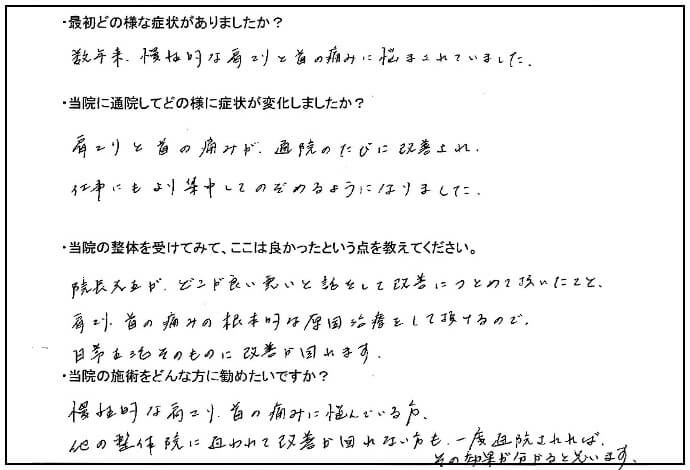 ・最初どの様な症状がありましたか？
数年来、慢性的な肩こりと首の痛みに悩まされていました。
・当院に通院してどの様に症状が変化しましたか？
肩こりと首の痛みが、通院のたびに改善され、
仕事にもより集中してのぞめるようになりました。
・当院の整体を受けてみて、ここは良かったという点を教えてください。
院長先生が、どこが良い悪いと話をして改善につとめて頂いたこと、
肩こり、首の痛みの根本的な原因治療をして頂けるので、
日常生活そのものに改善が図れます。
・当院の施術をどんな方に勧めたいですか？
慢性的な肩こり、首の痛みに悩んでいる方、
他の整体院に通われて改善が図れない方も、一度通院されれば、
その効果が分かると思います。